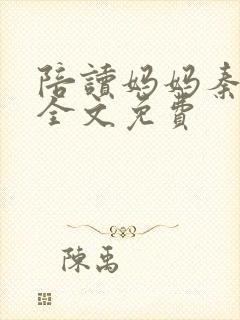 陪讀媽媽秦
全文免費
陳禹